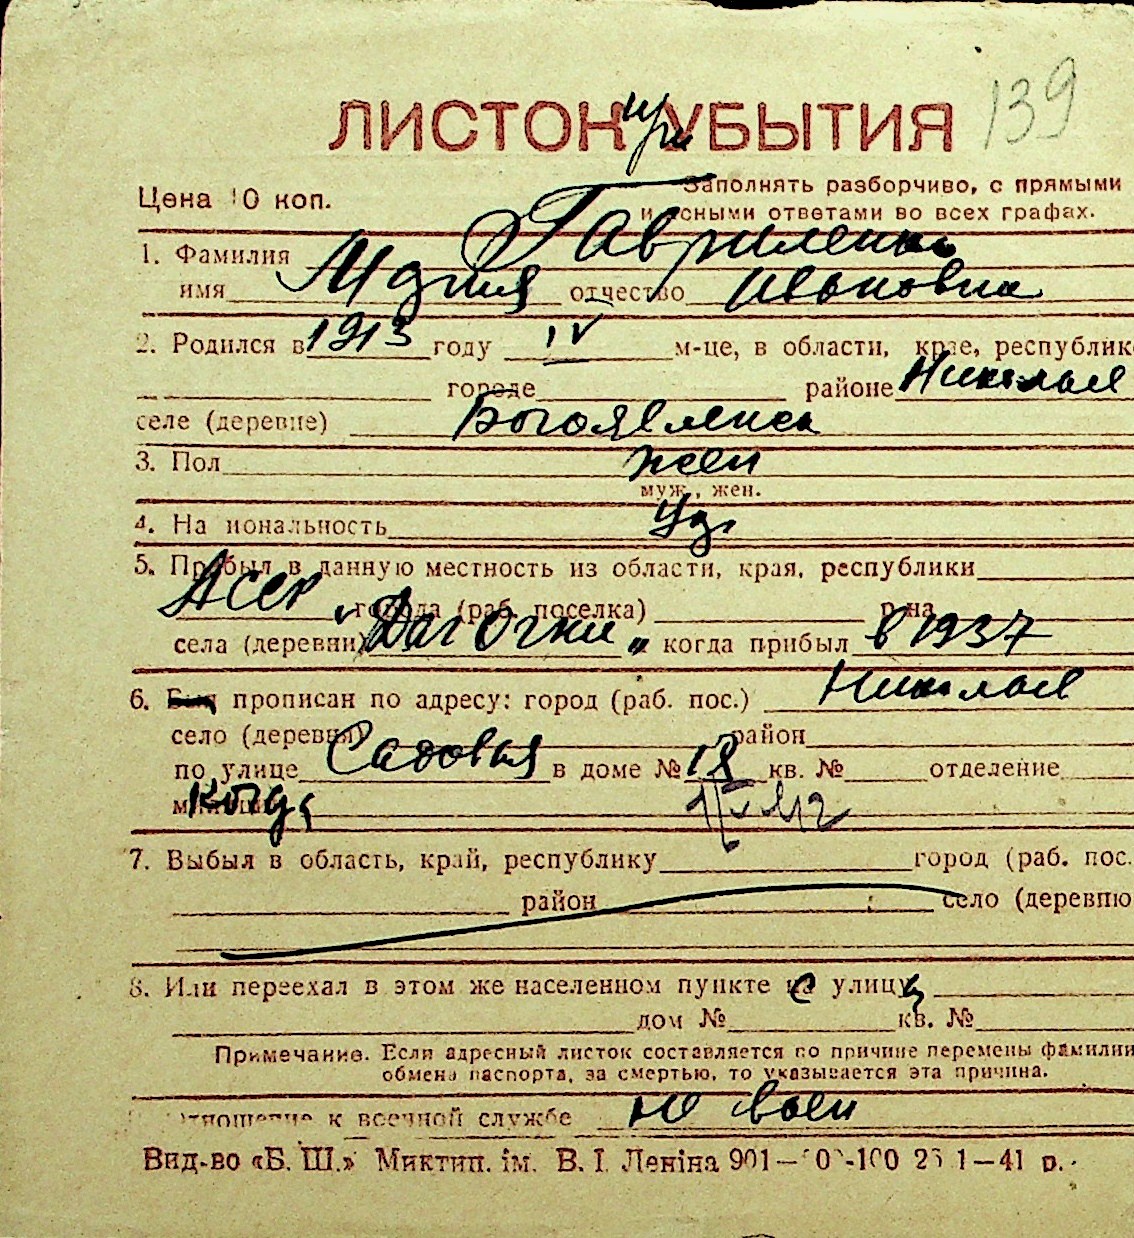 139
ЛИСТОК при УБЫТИЯ
Цена 10 коп.
Заполнять разборчиво, с прямыми
и ясными ответами во всех графах.
Гавриленко
1. Фамилия
имя Мария отчество Ивановна
2. Родился в 1913 году IV м-це, в области, крае, республике
городе районе Николаев
селе (деревне) Богоявленск
3. Пол жен
муж., жен.
4. Национальность
5. Прибыл в данную местность из области, края, республики
города (раб. поселка) р-на
села (деревни) когда прибыл в 1937
6. прописан по адресу: город (раб. пос.) Николаев
село (деревня) район
по улице Садовая в доме № 18 кв. № отделение
когда
7. Выбыл в область, край, республику город (раб. пос.
район село (деревню
8. Или переехал в этом же населенном пункте с улицы
дом № кв. №
Примечание. Если адресный листок составляется по причине перемены фамилии
обмена паспорта, за смертью, то указывается эта причина.
Отношение к военной службе не воен
Вид-во «Б. Ш.» Миктип. ім. В. І. Леніна 901— -100 1—41 р.